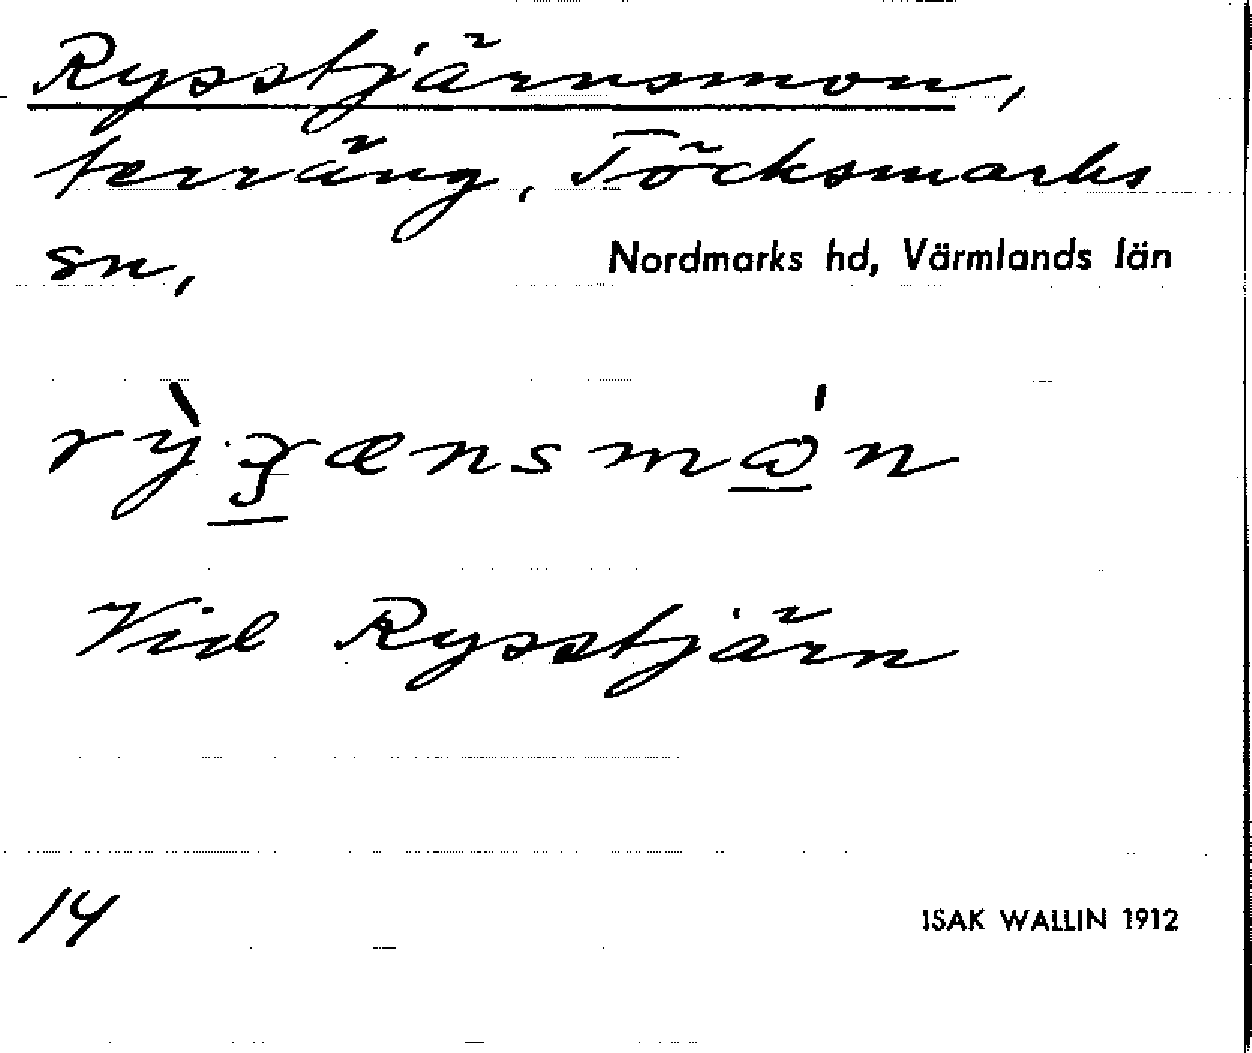 Rysstjärnsmon,
terräng, Töcksmarks
sn, Nordmarks hd, Värmlands län
Vid Rysstjärn
14 ISAK WALLIN 1912